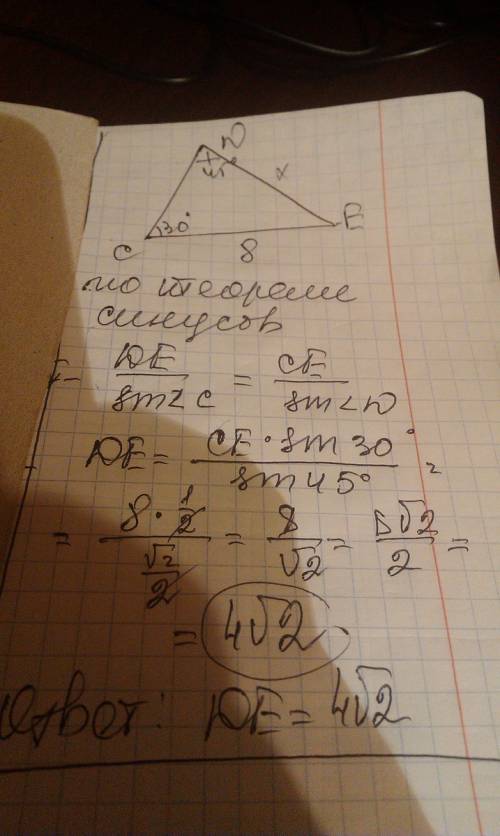 D
45°
x
30°
E
C
8
по теореме
синусов
DE/sin∠C = CE/sin∠D
DE = CE·sin30°/sin45° =
= (8·1/2)/(√2/2) = 8/√2 = 8√2/2 =
= 4√2.
Ответ: DE = 4√2